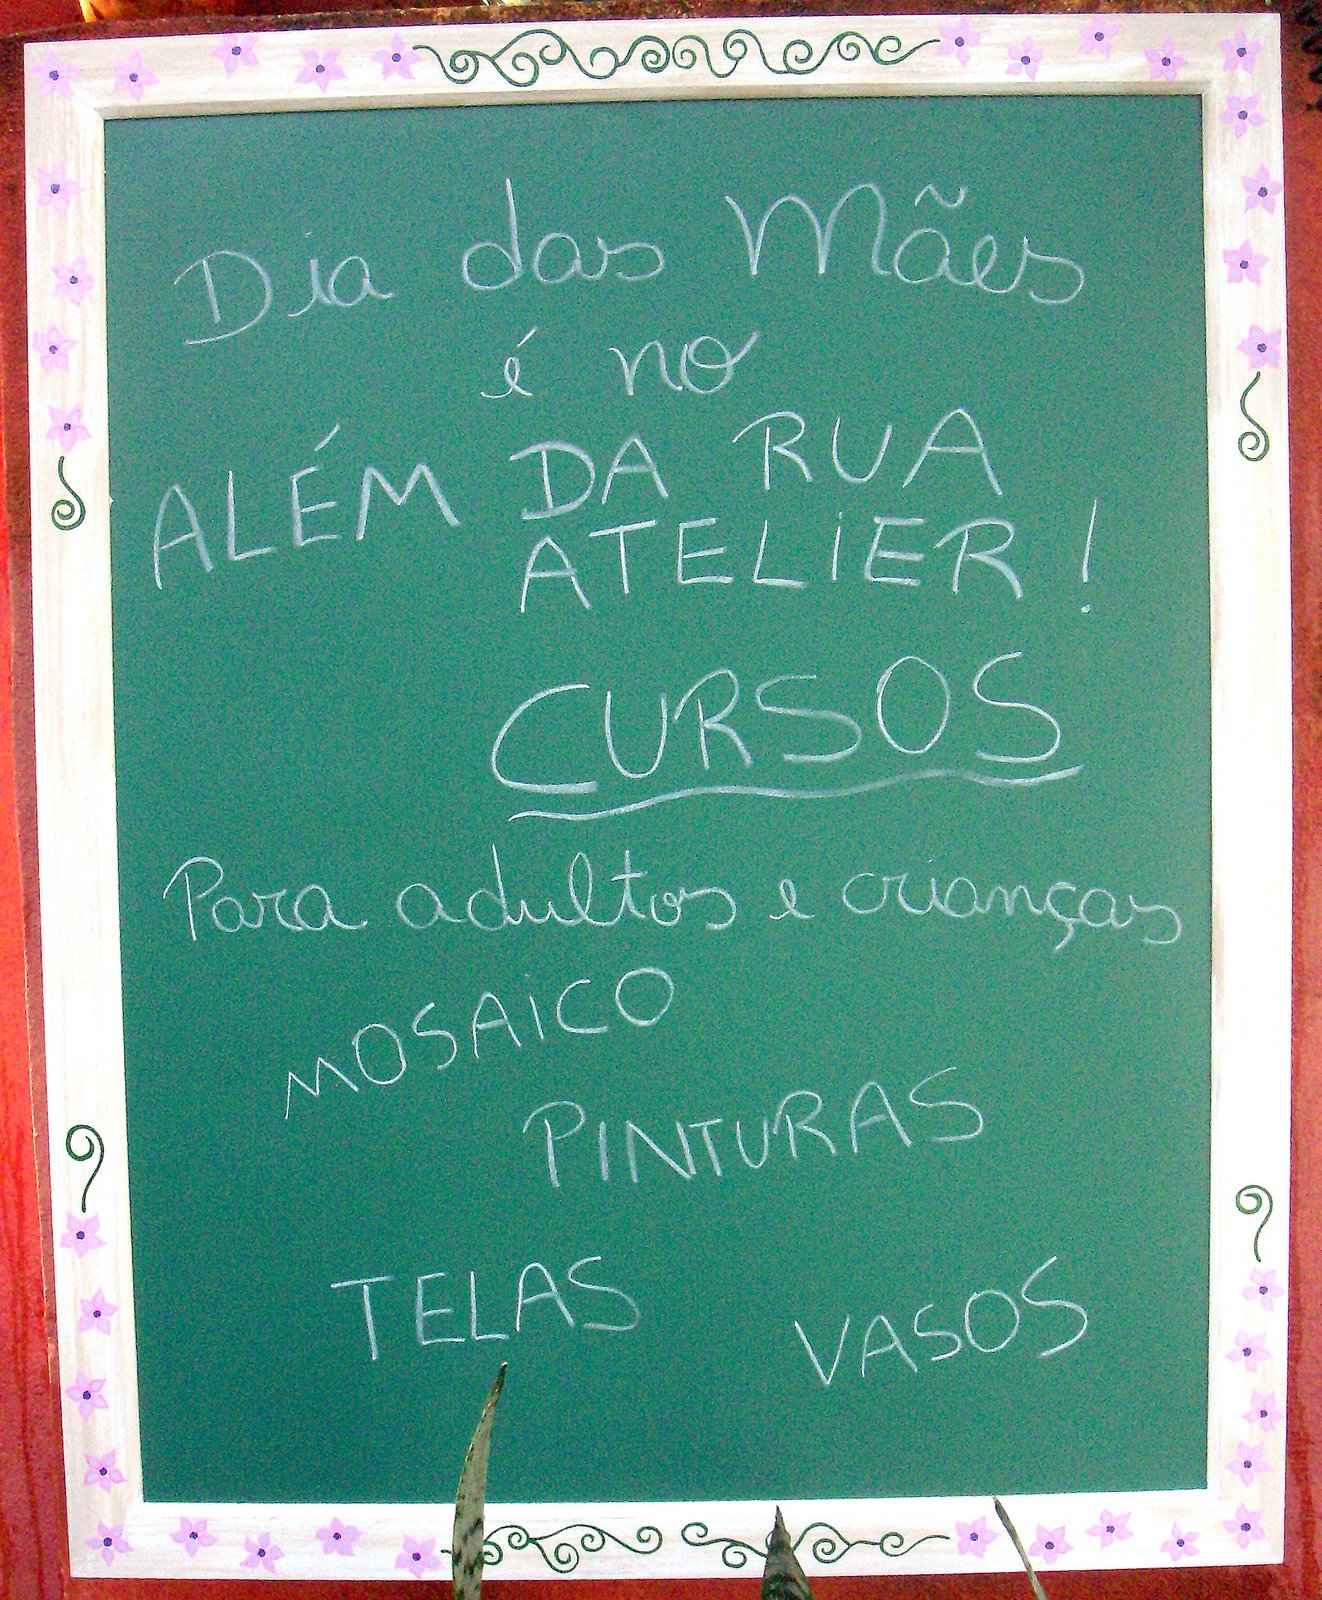 Dia das Mães
é no
ALÉM DA RUA
ATELIER!
CURSOS
Para adultos e crianças
MOSAICO
PINTURAS
TELAS VASOS